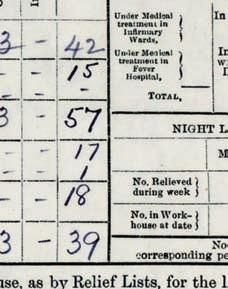 In
Under Medical
treatment in
Infirmary
Wards,
3 - 42
Under Medical
treatment in
Fever
Hospital,
In
- 15
- -
TOTAL,
3 - 57
NIGHT L
- 17
M
- 1
No. Relieved
during week
- 18
No. in Work-
house at date
3 - 39
No
corresponding pe
use, as by Relief Lists, for the l